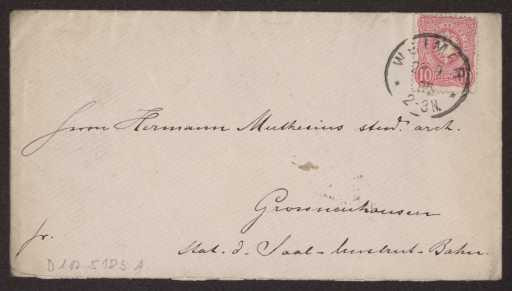 WEIMAR
2-3N.
10
Herrn Hermann Muthesius stud. arch.
Grossneuhausen
fr.
Stat. d. Saal-Unstrut-Bahn.
D 102-5185 A